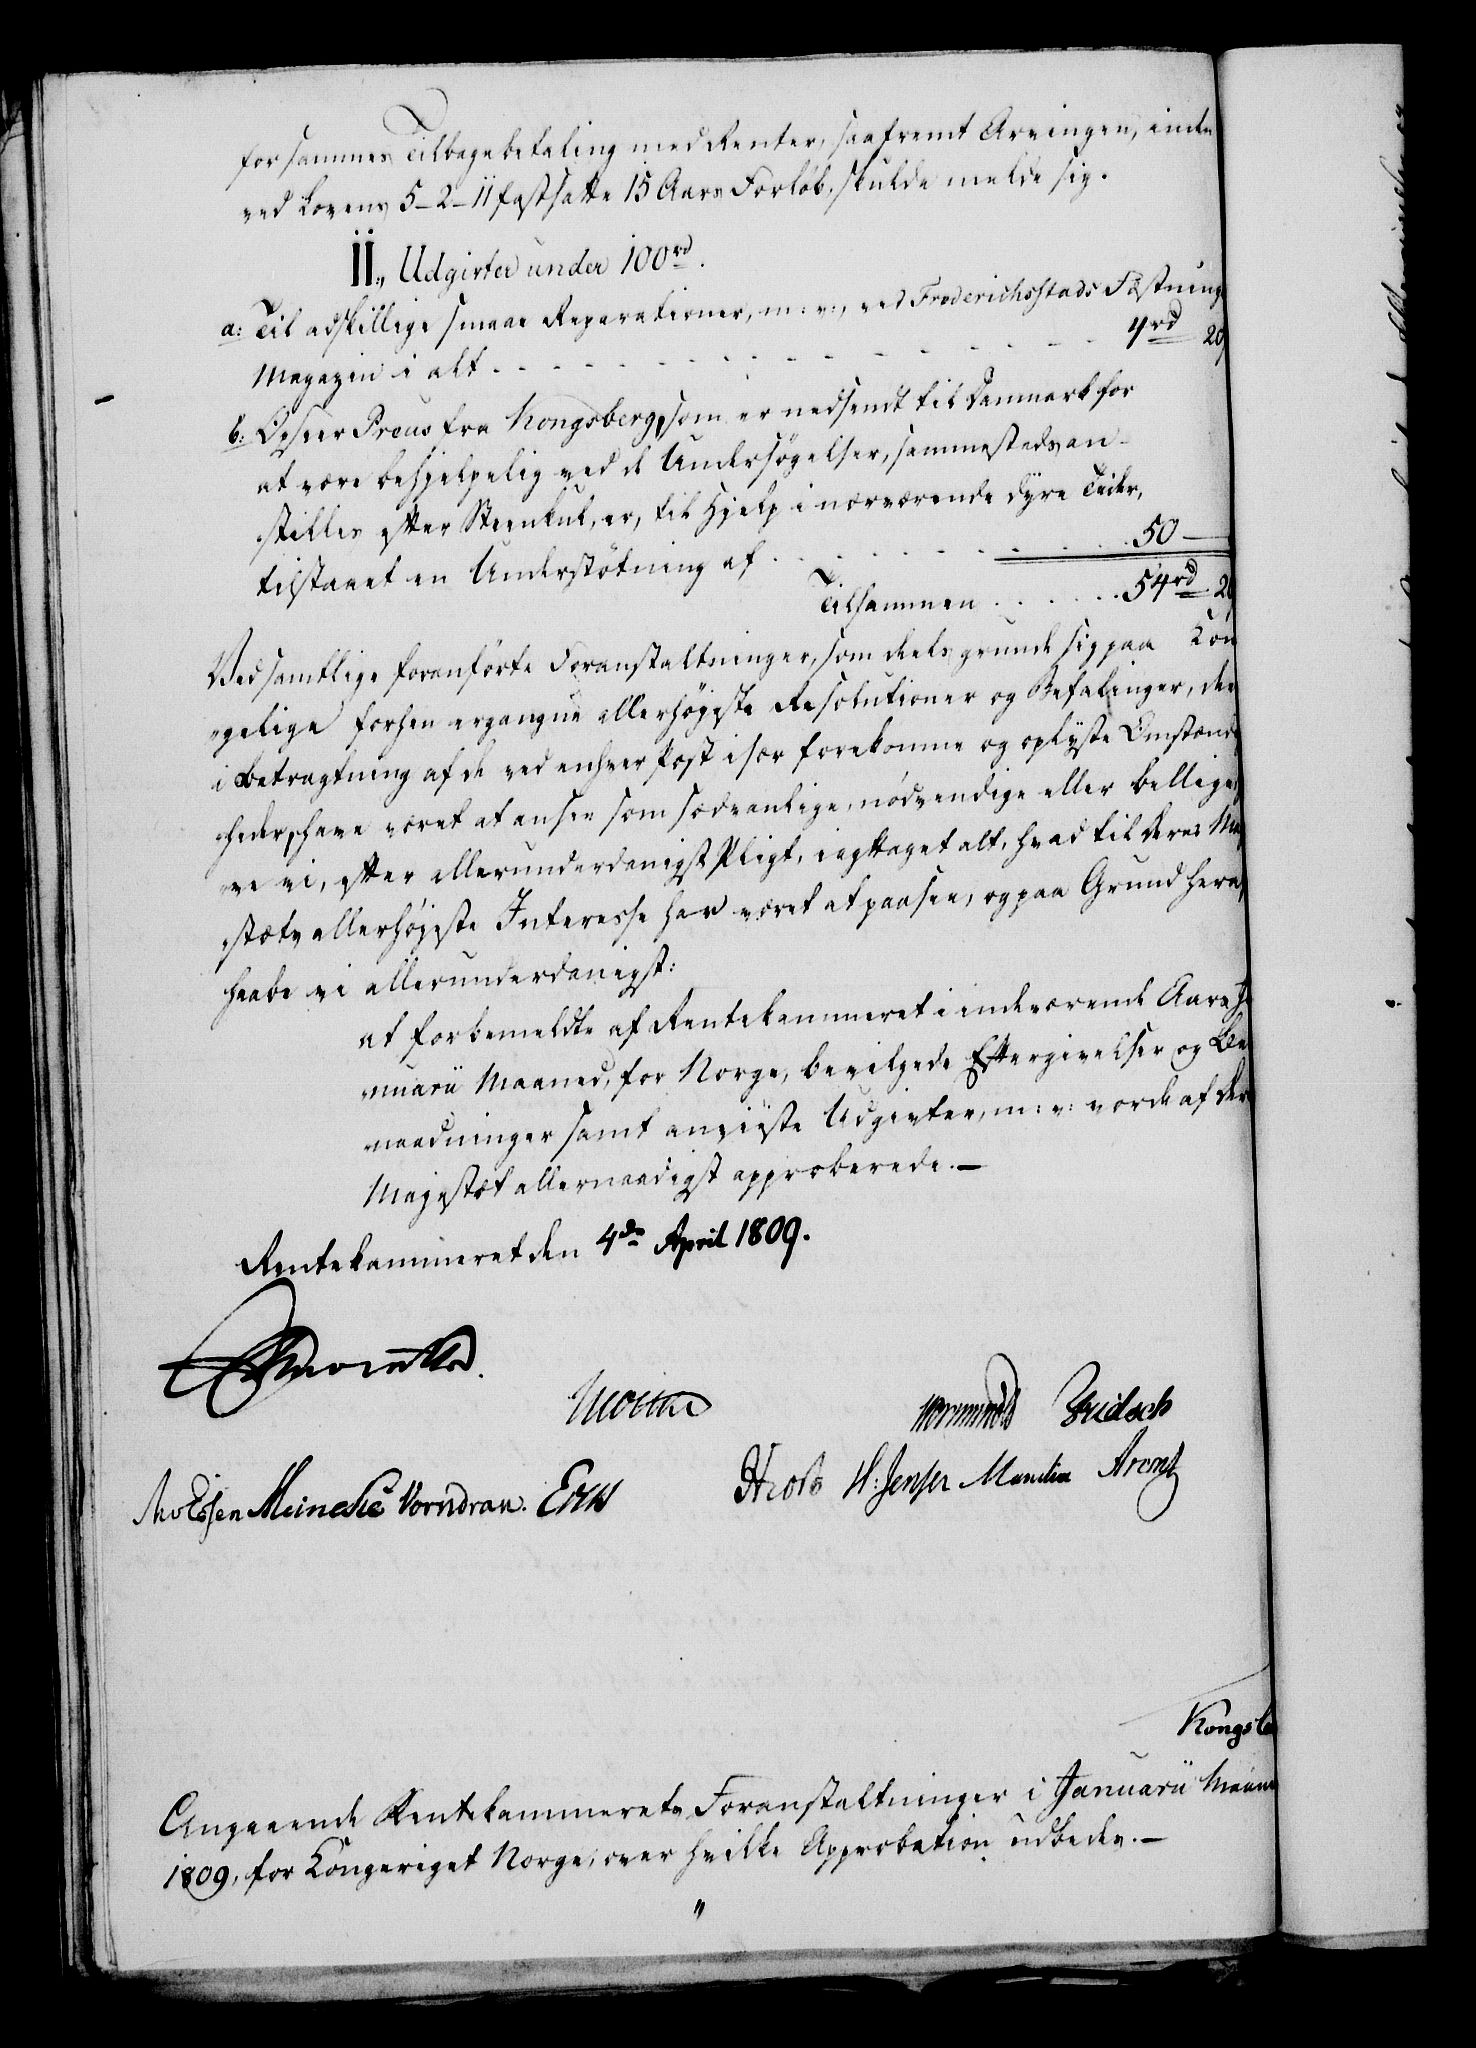 for sammes Tilbagebetaling med Renter, saafremt Arvingen, inden
ved Lovens 5-2-11 fastsatte 15 Aars Forløb, skulde melde sig.
II., Udgivter under 100 rd.
a: Til adskillige smaae Reparationer, m: v:, ved Frederichsstads Fæstnings
Magazin i alt . . . . . . . . . . . . . . . . 4 rd 20
b: Opseer Preus fra Kongsberg, som er nedsendt til Danmark for
at være behjelpelig ved de Undersøgelser, sammesteds an-
stilles efter Steenkul, er, til Hjelp i nærværende dyre Tider,
tilstaaet en Understøtning af . . . . . . . . . 50 —
Tilsammen . . . . . . 54 rd 20
Ved samtlige foranførte Foranstaltninger, som deels grunde sig paa Kon
gelige forhen ergangne allerhøjeste Resolutioner og Befalinger, dee
i Betragtning af de ved enhver Post især forekomne og oplyste Omstænd
heder, have været at ansee som sædvanlige, nødvendige eller billige,
ve vi, efter allerunderdanigst Pligt, iagttaget alt, hvad til Deres Ma
stæts allerhøjeste Interesse har været at paasee, og paa Grund heraf
haabe vi allerunderdanigst:
at forbemeldte af Rentekammeret i indeværende Aars Ja
nuarii Maaned, for Norge, bevilgede Eftergivelser og Be
naadninger samt anviiste Udgivter, m: v: vorde af Der
Majestæt allernaadigst approberede. —
Rentekammeret den 4de April 1809.
Wormskiold Fridsch
Meinche Vorndran.
H: Jensen Manthey
Kongsb
Angaaende Rentekammerets Foranstaltninger i Januarii Maane
1809, for Kongeriget Norge, over hvilke Approbation udbedes. —
"